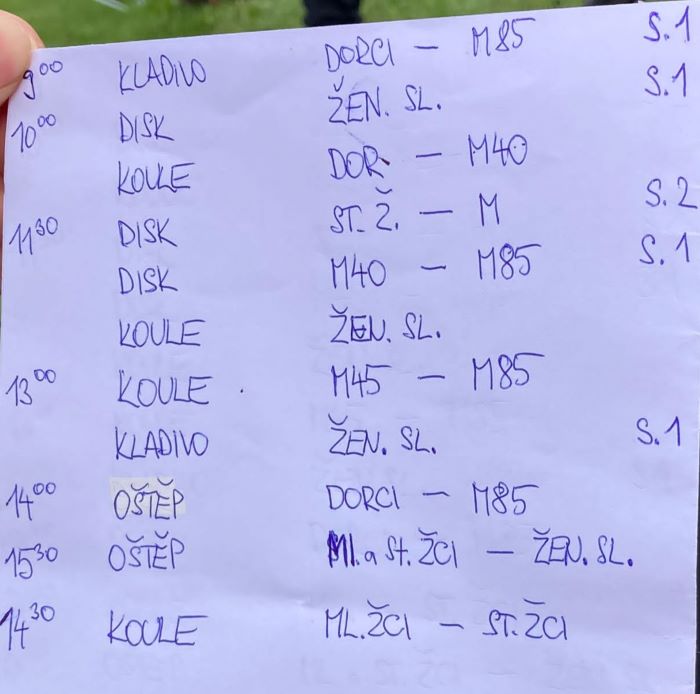 9⁰⁰ KLADIVO DORCI — M85 S.1
10⁰⁰ DISK ŽEN. SL. S.1
KOULE DOR. — M40
11³⁰ DISK ST. Ž. — M S.2
DISK M40 — M85 S.1
KOULE ŽEN. SL.
13⁰⁰ KOULE M45 — M85
KLADIVO ŽEN. SL. S.1
14⁰⁰ OŠTĚP DORCI — M85
15³⁰ OŠTĚP Ml. a St. ŽCI — ŽEN. SL.
14³⁰ KOULE ML. ŽCI — ST. ŽCI